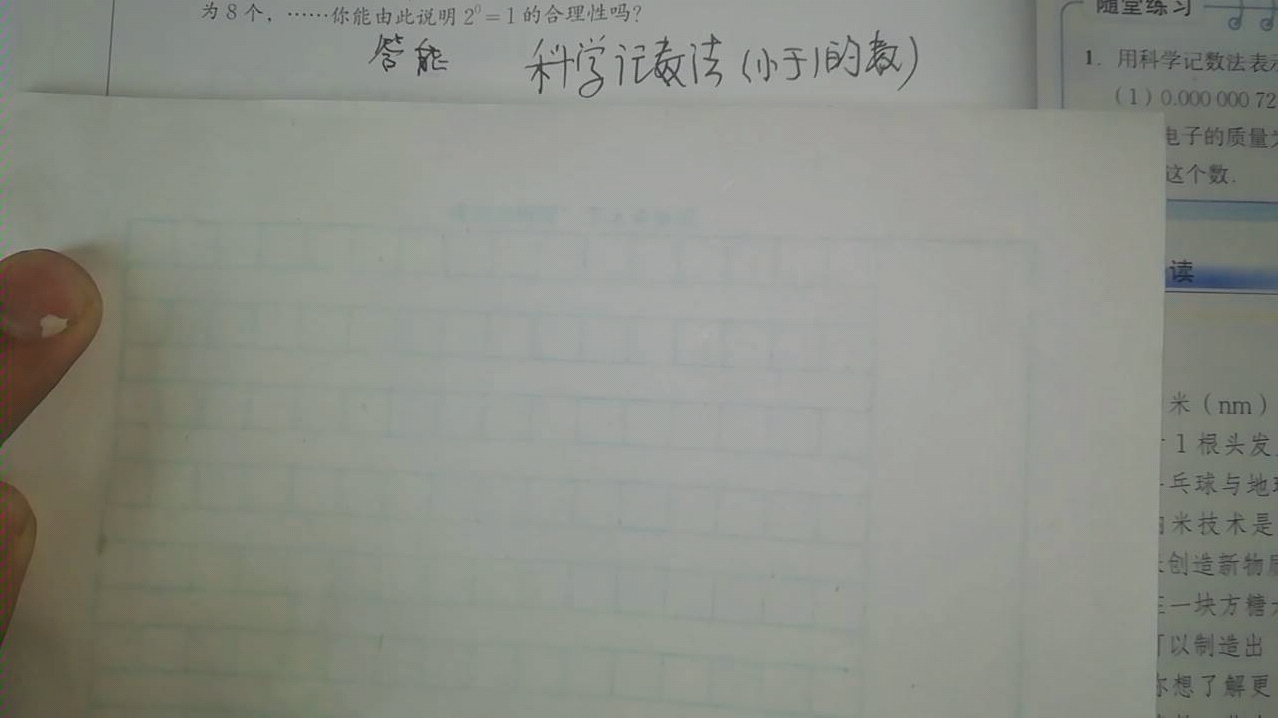 为8个，……你能由此说明2⁰=1的合理性吗？
答能 科学记数法（小于1的数）
随堂练习
1. 用科学记数法表示
（1）0.000 000 72
电子的质量为
这个数.
读
米（nm）
1根头发
乒球与地球
米技术是
创造新物质
一块方糖大
可以制造出
你想了解更